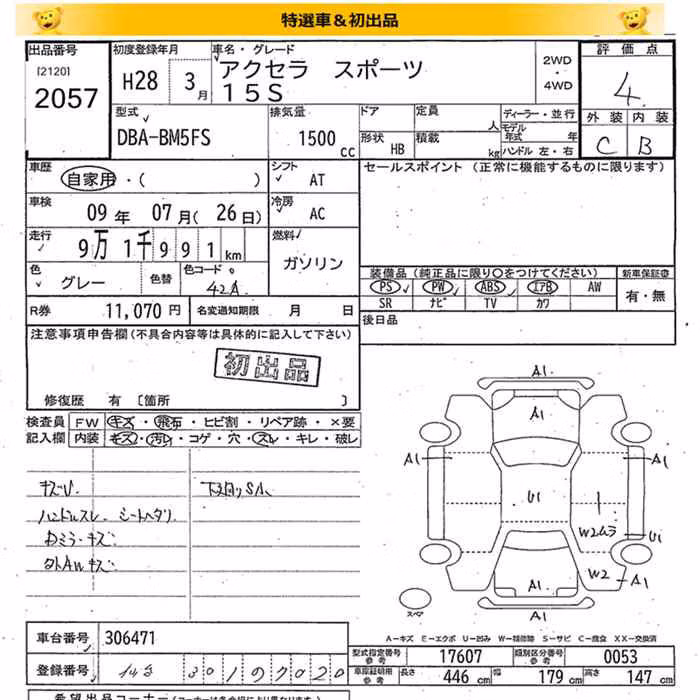 特選車＆初出品
出品番号
[2120]
2057
初度登録年月
H28 3月
車名・グレード
アクセラ スポーツ
15S
2WD
・
4WD
評価点
4
外装 内装
C B
型式
DBA-BM5FS
排気量
1500 cc
ドア
形状 HB
定員 人
積載 kg
ディーラー・並行
モデル年式 年
ハンドル 左・右
車歴
自家用・( )
シフト
AT
セールスポイント (正常に機能するものに限ります)
車検
09年 07月(26日)
冷房
AC
走行
9万1千991km
燃料
ガソリン
色
グレー
色替
色コード
42A
装備品 (純正品に限り○をつけてください)
新車保証書
PS PW ABS エアB AW
有・無
SR ナビ TV カワ
R券 11,070円
名変通知期限 月 日
後日品
注意事項申告欄(不具合内容等は具体的に記入して下さい)
初出品
修復歴 有 [箇所 ]
検査員 FW キズ・飛石・ヒビ割・リペア跡・×要
記入欄 内装 キズ・汚レ・コゲ・穴・スレ・キレ・破レ
キズU
ハンドルスレ シートヘタリ
A1
A1
A1
A1
U1
W2ムラ
U1
W2
A1
A1
A1
スペア
A-キズ E-エクボ U-凹み W-補修跡 S-サビ C-腐食 XX-交換済
車台番号 306471
型式指定番号
参考
17607
類別区分番号
参考
0053
登録番号 301 7020
車庫証明用
参考
長さ 446 cm 幅 179 cm 高さ 147 cm
希望出品コーナー